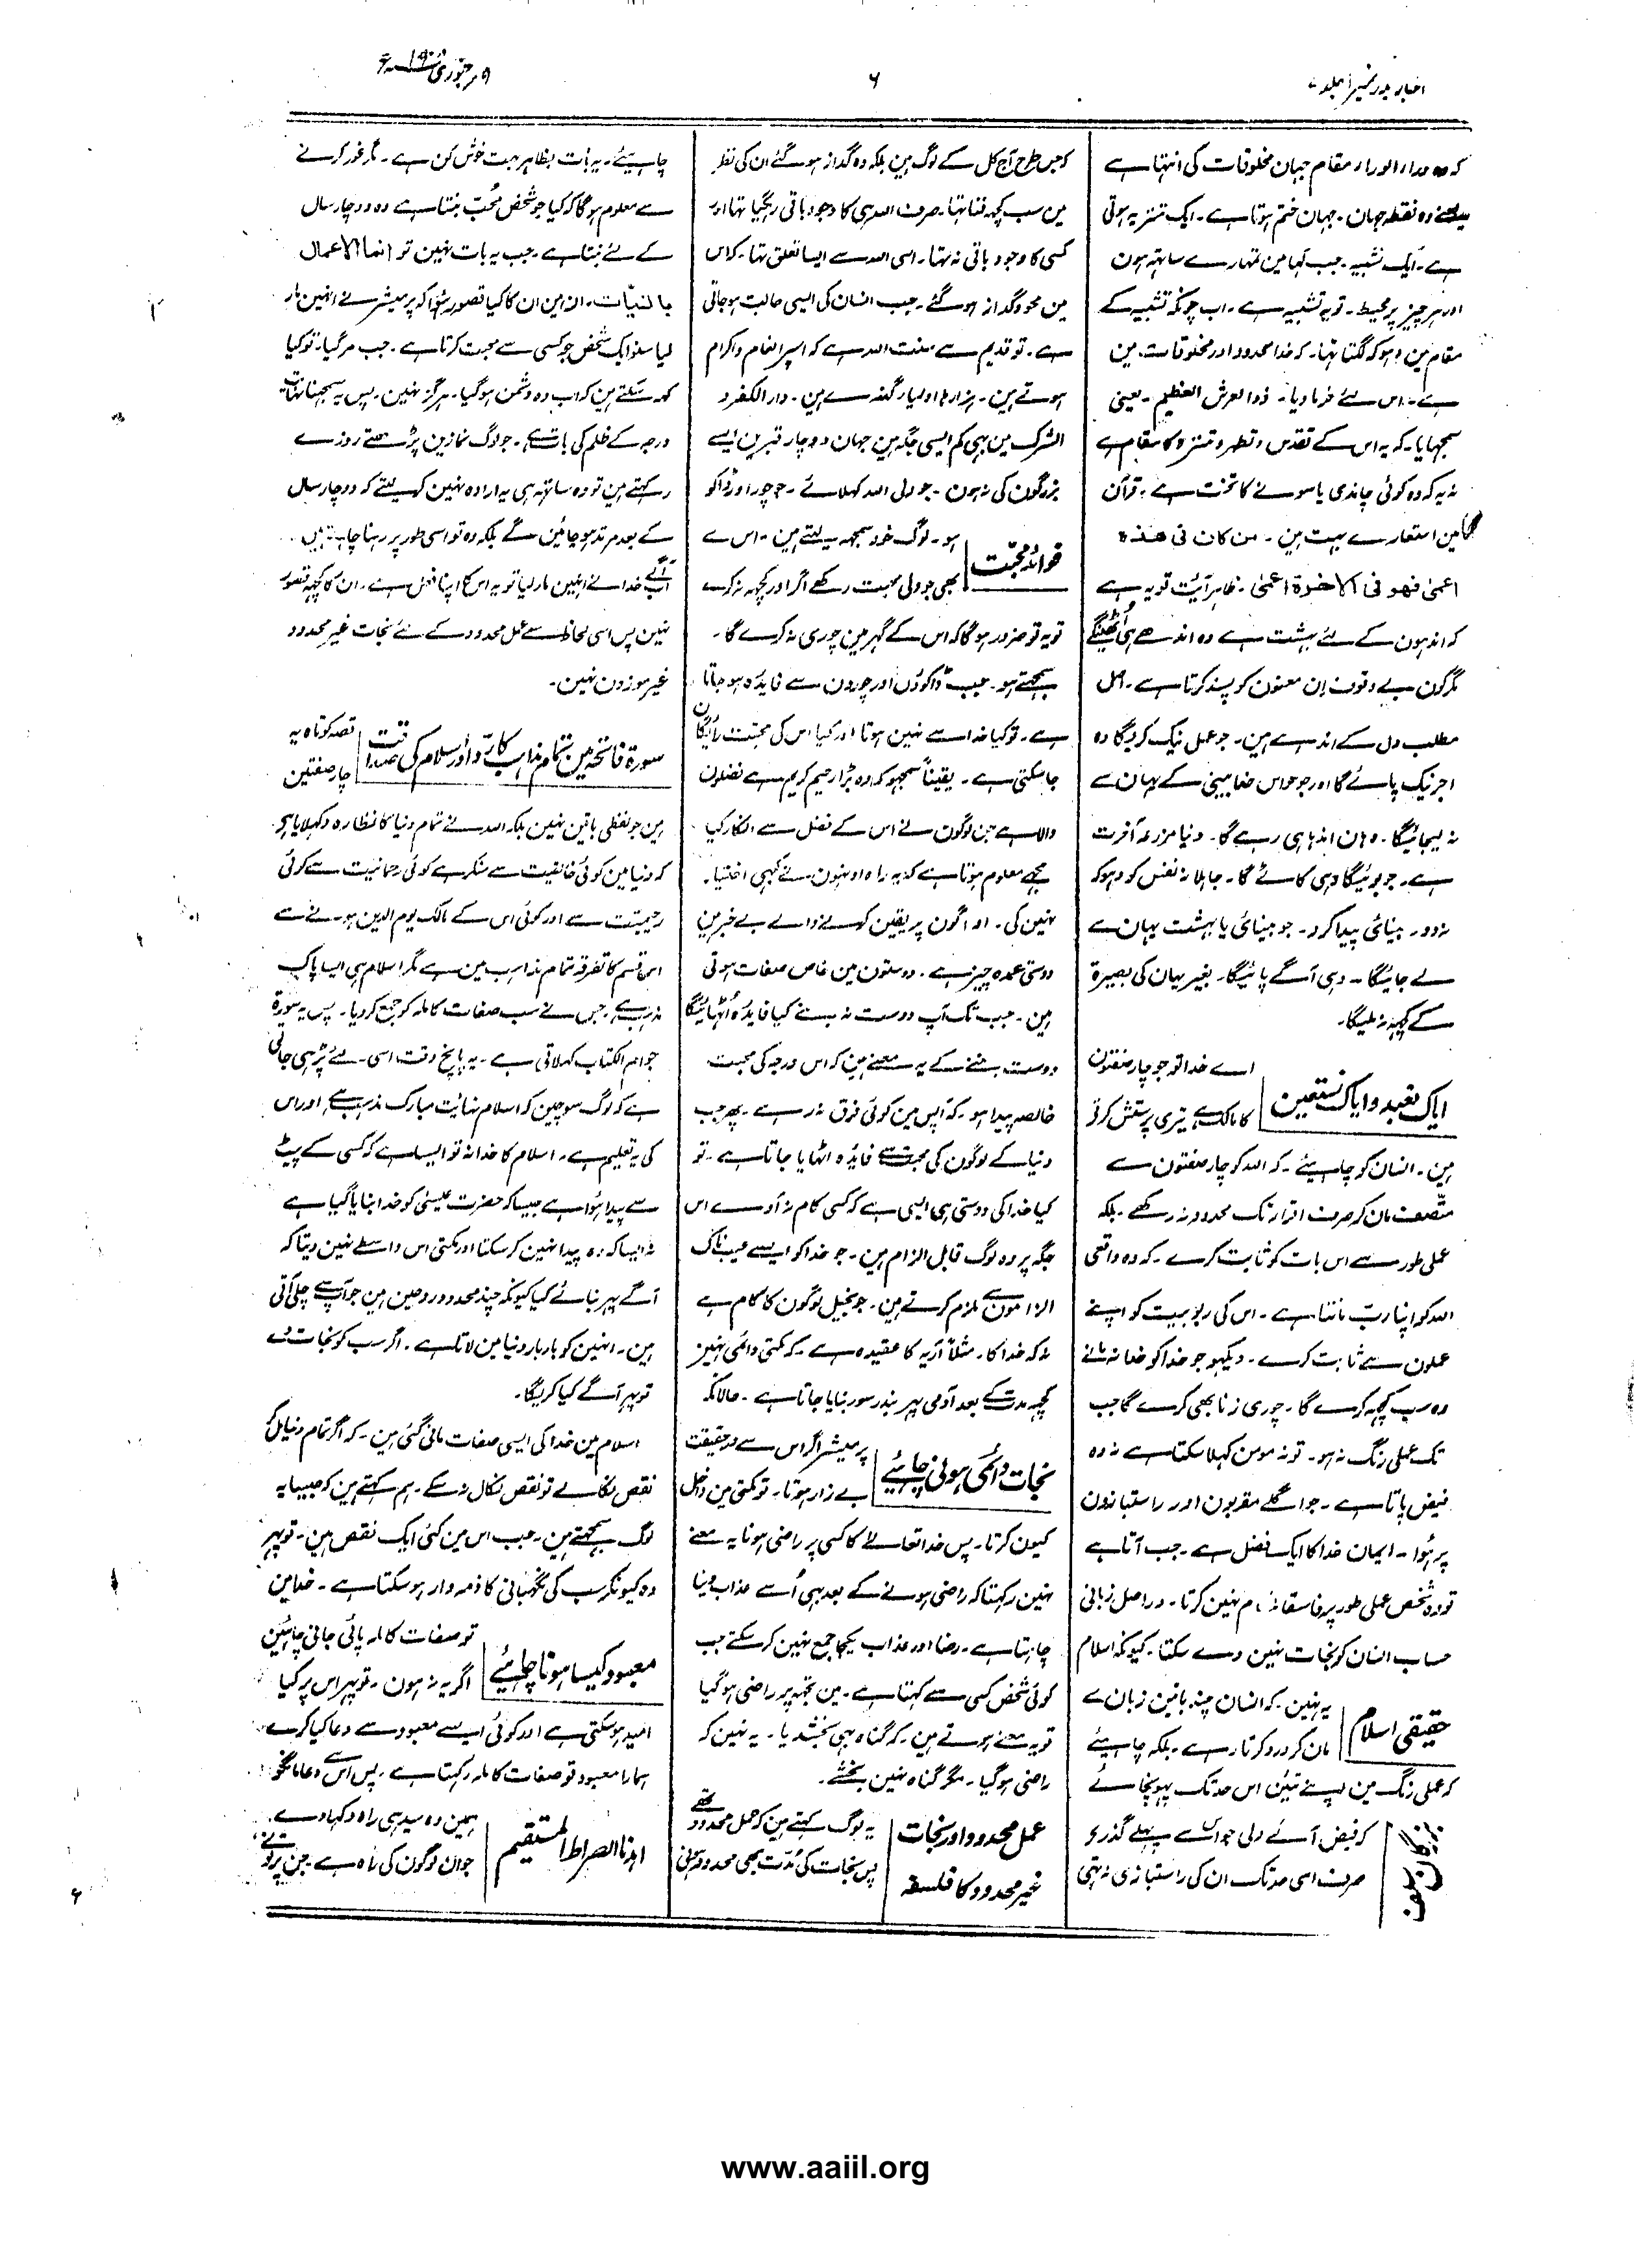 اخبار بدر نمبر ۱ جلد ۷
۶
۹ جنوری ۱۹۰۸ء
کہ وہ وراء الوراء مقام جہان مخلوقات کی انتہا ہے
یعنے وہ نقطہ جہان ۔ جہان ختم ہوتا ہے ۔ ایک تنزیہ ہوتی
ہے ۔ ایک تشبیہ ۔ جب کہا مین تمہارے ساتہہ ہون
اور ہر چیز پر محیط ۔ تو یہ تشبیہ ہے ۔ اب چونکہ تشبیہ کے
مقام مین دہوکہ لگتا تہا ۔ کہ خدا محدود اور مخلوقات مین
ہے ۔ اس لئے فرما دیا ۔ ذوالعرش العظیم ۔ یعنی
سمجہایا ۔ کہ یہ اس کے تقدس و تطہر و تنزہ کا مقام ہے
نہ یہ کہ وہ کوئی چاندی یا سونے کا تخت ہے ۔ قرآن
مین استعارے بہت ہین ۔ من کان فی ھذہ
اعمیٰ فھو فی الاخرة اعمیٰ ۔ ظاہر آیت تو یہ ہے
کہ اندہون کے لئے بہشت ہے وہ اندھے ہی اُٹھینگے
مگر کون بے وقوف اِن معنون کو پسند کرتا ہے ۔ اصل
مطلب دل کے اندہے ہین ۔ جو عمل نیک کریگا وہ
اجر نیک پائے گا اور جو حواس خدا بینی کے یہان سے
نہ لیجائیگا ۔ وہان اندہا ہی رہے گا ۔ دنیا مزرعہ آخرت
ہے ۔ جو بوئیگا وہی کاٹے گا ۔ جاہلانہ نفس کو دہوکہ
نہ دو ۔ بینائی پیدا کرو ۔ جو بینائی یا بہشت یہان سے
لے جائیگا ۔ وہی آگے پائیگا ۔ بغیر یہان کی بصیرة
کے کچہہ نہ ملیگا ۔
ایاک نعبد وایاک نستعین
اے خدا تو جو چار صفتون
کا مالک ہے تیری پرستش کرتے
ہین ۔ انسان کو چاہیئے ۔ کہ اللہ کو چار صفتون سے
متّصف مان کر صرف اقرار تک محدود نہ رکھے ۔ بلکہ
عملی طور سے اس بات کو ثابت کرے ۔ کہ وہ واقعی
اللہ کو اپنا ربّ مانتا ہے ۔ اس کی ربوبیت کو اپنے
عملون سے ثابت کرے ۔ دیکہو جو خدا کو خدا نہ مانے
وہ سب کچہہ کرے گا ۔ چوری زنا بھی کرے گا جب
تک عملی رنگ نہ ہو ۔ تو نہ مومن کہلا سکتا ہے نہ وہ
فیض پاتا ہے ۔ جو اگلے مقربون اور راستبازون
پر ہُوا ۔ ایمان خدا کا ایک فضل ہے ۔ جب آتا ہے
تو وہ شخص عملی طور پر فاسقانہ کام نہین کرتا ۔ دراصل زبانی
حساب انسان کو نجات نہین دے سکتا ۔ کیونکہ اسلام
حقیقی اسلام
یہ نہین ۔ کہ انسان چند باتین زبان سے
مان کر ورد کرتا رہے ۔ بلکہ چاہیئے
کہ عملی رنگ مین اپنے تیئن اس حد تک پہونچائے
کہ فیض آئے ولی جو اب سے پہلے گذرے
صرف اسی حد تک ان کی راستبازی نہ تہی
کہ جس طرح آج کل کے لوگ ہین بلکہ وہ گداز ہو گئے ان کی نظر
مین سب کچہہ فنا تہا ۔ صرف اللہ ہی کا وجود باقی رہگیا تہا اور
کسی کا وجود باقی نہ تہا ۔ اسی اللہ سے ایسا تعلق تہا ۔ کہ اس
مین محو و گداز ہو گئے ۔ جب انسان کی ایسی حالت ہو جاتی
ہے ۔ تو قدیم سے سنت اللہ ہے کہ اسپر انعام و اکرام
ہوتے ہین ۔ ہزارہا اولیاء گذرے ہین ۔ دارالکفر و
الشرک مین بہی کم ایسی جگہ ہین جہان دو چار قبرین ایسے
بزرگون کی نہ ہون ۔ جو ولی اللہ کہلائے ۔ جو چور اور ڈاکو
فوائد محبّت
ہو ۔ لوگ خود سمجہہ لیتے ہین ۔ اس سے
بھی جو ولی محبت رکھے اگر اور کچہہ نہ کرے
تو یہ تو ضرور ہو گا کہ اس کے گہر مین چوری نہ کرے گا ۔
سمجھتے ہو ۔ جب ڈاکوؤن اور چورون سے فایدہ ہو جاتا
ہے ۔ تو کیا خدا سے نہین ہوتا اور کیا اس کی محبت رائیگان
جا سکتی ہے ۔ یقیناً سمجہو کہ وہ بڑا رحیم کریم ہے فضلون
والا ہے جن لوگون نے اس کے فضل سے انکار کیا
مجھے معلوم ہوتا ہے کہ یہ راہ اونہون نے کبہی اختیار
نہین کی ۔ اواگون پر یقین کرنے والے بے خبر ہین
دوستی عمدہ چیز ہے ۔ دوستون مین خاص صفات ہوتی
ہین ۔ جب تک آپ دوست نہ بنے کیا فایدہ اُٹھائیگا
دوست بننے کے یہ معنے ہین کہ اس درجہ کی محبت
خالصہ پیدا ہو ۔ کہ آپس مین کوئی فرق نہ رہے ۔ پھر جب
دنیا کے لوگون کی محبت سے فایدہ اٹھایا جاتا ہے ۔ تو
کیا خدا کی دوستی ہی ایسی ہے کہ کسی کام نہ آوے اس
جگہ پر وہ لوگ قابل الزام ہین ۔ جو خدا کو ایسے عیبناک
الزامون سے ملزم کرتے ہین ۔ جو بخیل لوگون کا کام ہے
نہ کہ خدا کا ۔ مثلاً آریہ کا عقیدہ ہے ۔ کہ مکتی دائمی نہین
کچہہ مدت کے بعد آدمی پہر بندر سور بنایا جاتا ہے ۔ حالانکہ
نجات دائمی ہونی چاہئیے
پرمیشر اگر اس سے درحقیقت
بے زار ہوتا ۔ تو مکتی مین داخل
کیون کرتا ۔ پس خدا تعالےٰ کا کسی پر راضی ہونا یہ معنے
نہین رکہتا کہ راضی ہونے کے بعد بہی اُسے عذاب دینا
چاہتا ہے ۔ رضا اور عذاب یکجا جمع نہین کر سکتے جب
کوئی شخص کسی سے کہتا ہے ۔ مین تجہہ پر راضی ہو گیا
تو یہ معنے ہوتے ہین ۔ کہ گناہ بہی بخشدیا ۔ یہ نہین کہ
راضی ہو گیا ۔ مگر گناہ نہین بخشے ۔
عمل محدود اور نجات
غیر محدود کا فلسفہ
یہ لوگ کہتے ہین کہ عمل محدود تھے
پس نجات کی مُدّت بھی محدود ہونی
چاہیئے ۔ یہ بات بظاہر بہت خوش کن ہے ۔ مگر غور کرنے
سے معلوم ہو گا کہ کیا جو شخص مُحِبّ بنتا ہے وہ دو چار سال
کے لئے بنتا ہے ۔ جب یہ بات نہین تو انما الاعمال
بالنیّات ۔ ان مین ان کا کیا تصور ہُوا کہ پرمیشر نے انہین مار
لیا سنو ایک شخص جو کسی سے محبت کرتا ہے ۔ جب مر گیا ۔ تو کیا
کہہ سکتے ہین کہ اب وہ دشمن ہو گیا ۔ ہرگز نہین ۔ پس یہ سمجہنا نہایت
درجہ کے ظلم کی بات ہے ۔ جو لوگ نمازین پڑھتے روزے
رکہتے ہین تو وہ ساتہہ ہی یہ ارادہ نہین کر لیتے کہ دو چار سال
کے بعد مرتد ہو جائین گے بلکہ وہ تو اسی طور پر رہنا چاہتے ہین
آگے اب خدا نے انہین مار لیا تو یہ اس کا اپنا فعل ہے ۔ ان کا کچہہ قصور
نہین پس اسی لحاظ سے عمل محدود کے لئے نجات غیر محدود
غیر موزون نہین ۔
سورۃ فاتحہ مین تمام مذاہب کا ردّ اور اسلام کی صداقت
قصہ کوتاہ یہ
چار صفتین
ہین جو لفظی باتین نہین بلکہ اللہ نے تمام دنیا کا نظارہ دکہلایا ہے
کہ دنیا مین کوئی خالقیت سے منکر ہے کوئی رحمانیت سے کوئی
رحیمیت سے اور کوئی اس کے مالک یوم الدین ہونے سے
اس قسم کا تفرقہ تمام مذاہب مین ہے مگر اسلام ہی ایسا پاک
مذہب ہے ۔ جس نے سب صفات کاملہ کو جمع کر دیا ۔ پس یہ سورۃ
جو ام الکتاب کہلاتی ہے ۔ یہ پانچ وقت اسی لئے پڑہی جاتی
ہے کہ لوگ سوچین کہ اسلام نہایت مبارک مذہب ہے اور اس
کی یہ تعلیم ہے ۔ اسلام کا خدا نہ تو ایسا ہے کہ کسی کے پیٹ
سے پیدا ہُوا ہے جیسا کہ حضرت عیسیٰ کو خدا بنایا گیا ہے
نہ ایسا کہ وہ پیدا نہین کر سکتا اور مکتی اس واسطے نہین دیتا کہ
آگے پہر بنائے کیا کیونکہ چند محدود روحین ہین جو آپ سے چلی آتی
ہین ۔ انہین کو بار بار دنیا مین لاتا ہے ۔ اگر سب کو نجات دے
تو پہر آگے کیا کریگا ۔
اسلام مین خدا کی ایسی صفات مانی گئی ہین ۔ کہ اگر تمام دنیا مل کر
نقص نکالے تو نقص نکال نہ سکے ۔ ہم کہتے ہین کہ جیسا یہ
لوگ سمجہتے ہین ۔ جب اس مین کئی ایک نقص ہین ۔ تو پہر
وہ کیونکر سب کی نگہبانی کا ذمہ وار ہو سکتا ہے ۔ خدا مین
معبود کیسا ہونا چاہئیے
تو صفات کاملہ پائی جانی چاہئین
اگر یہ نہ ہون ۔ تو پہر اس پر کیا
امید ہو سکتی ہے اور کوئی ایسے معبود سے دعا کیا کرے
ہمارا معبود تو صفات کاملہ رکہتا ہے ۔ پس اس سے دعا مانگو
اہدنا الصراط المستقیم
ہمین وہ سیدہی راہ دکہاوے
جو ان لوگون کی راہ ہے جن پر تو نے
www.aaiil.org